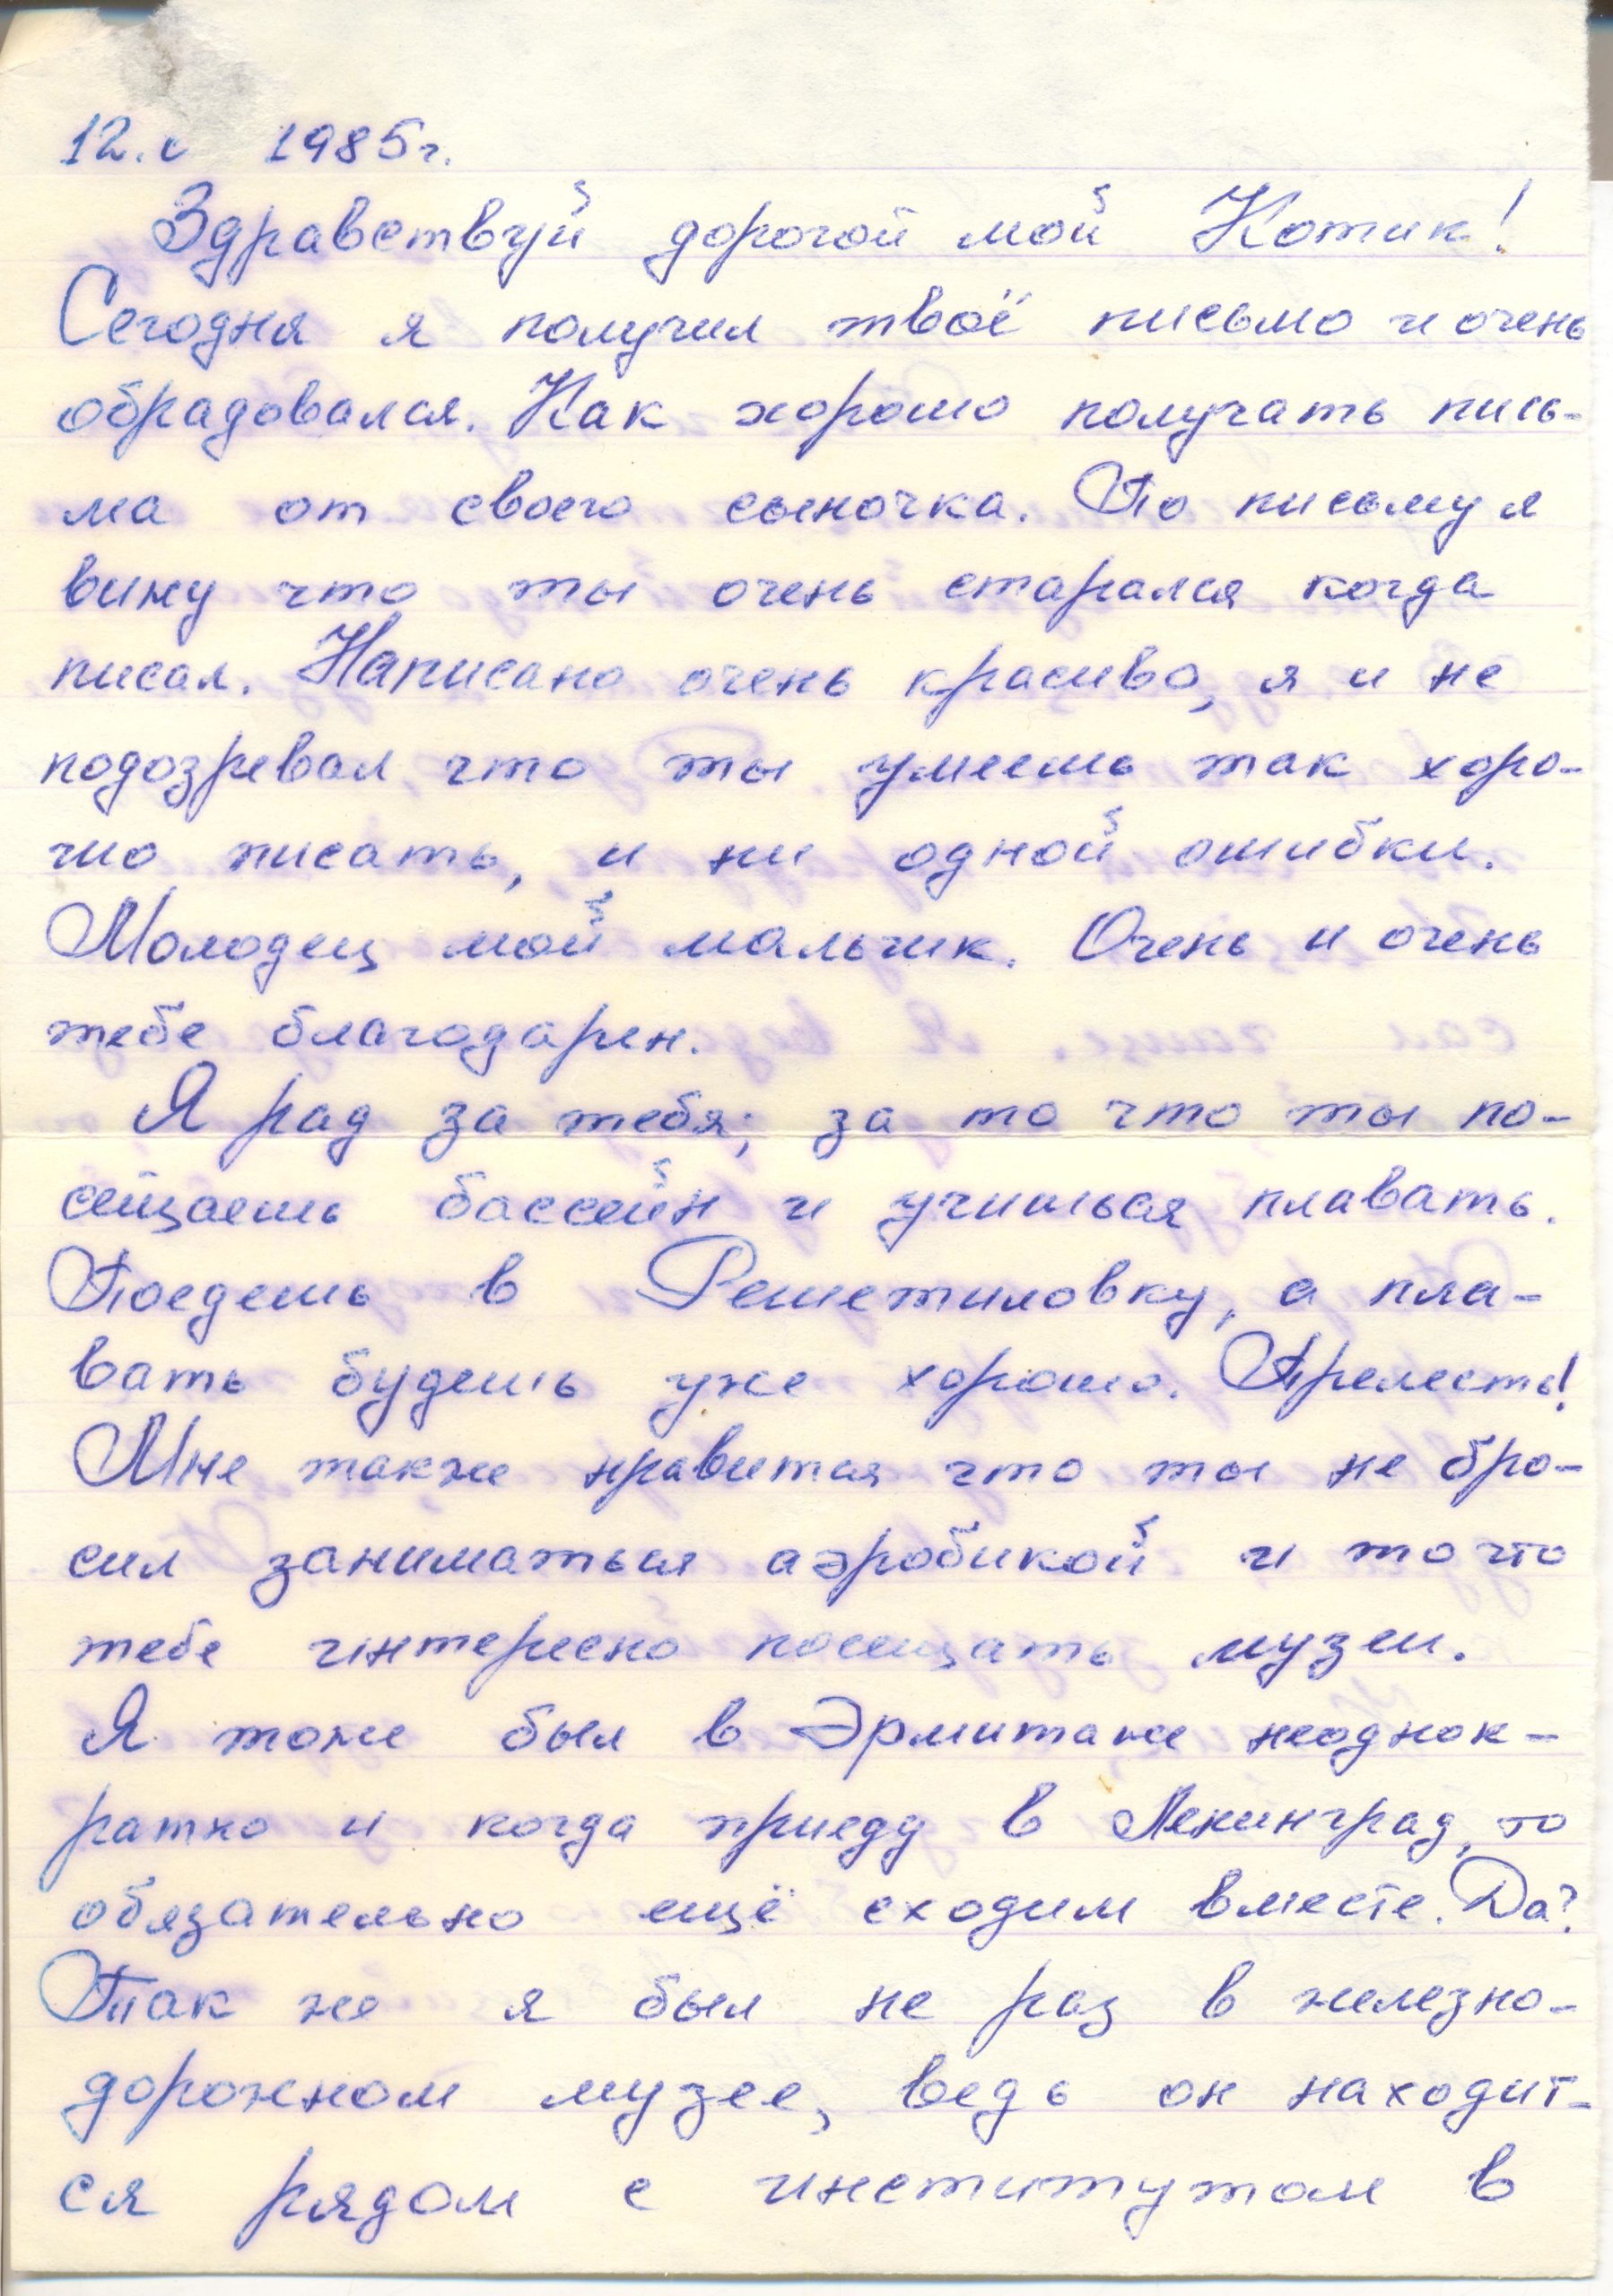 12. 1985г.
Здравствуй дорогой мой Котик!
Сегодня я получил твоё письмо и очень
обрадовался. Как хорошо получать пись-
ма от своего сыночка. По письму я
вижу что ты очень старался когда
писал. Написано очень красиво, я и не
подозревал, что ты умеешь так хоро-
шо писать, и ни одной ошибки.
Молодец мой мальчик. Очень и очень
тебе благодарен.
Я рад за тебя; за то что ты по-
сещаешь бассейн и учишься плавать.
Поедешь в Решетиловку, а пла-
вать будешь уже хорошо. Прелесть!
Мне также нравится что ты не бро-
сил заниматься аэробикой и то что
тебе интересно посещать музеи.
Я тоже был в Эрмитаже неоднок-
ратно и когда приеду в Ленинград, то
обязательно ещё сходим вместе. Да?
Так же я был не раз в железно-
дорожном музее, ведь он находит-
ся рядом с институтом в